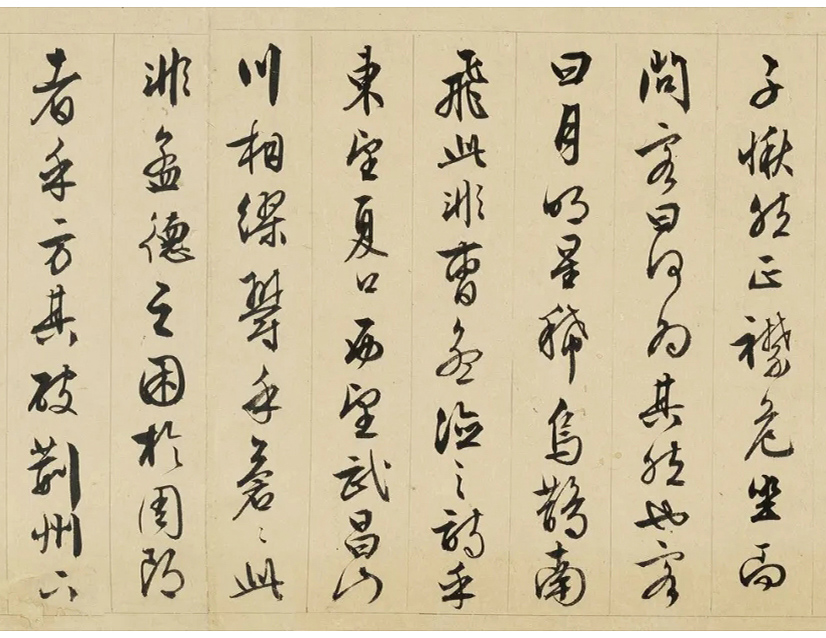 子愀然正襟危坐而
問客曰何為其然也客
曰月明星稀烏鵲南
飛此非曹孟德之詩乎
東望夏口西望武昌山
川相繆鬱乎蒼〻此
非孟德之困於周郎
者乎方其破荊州下